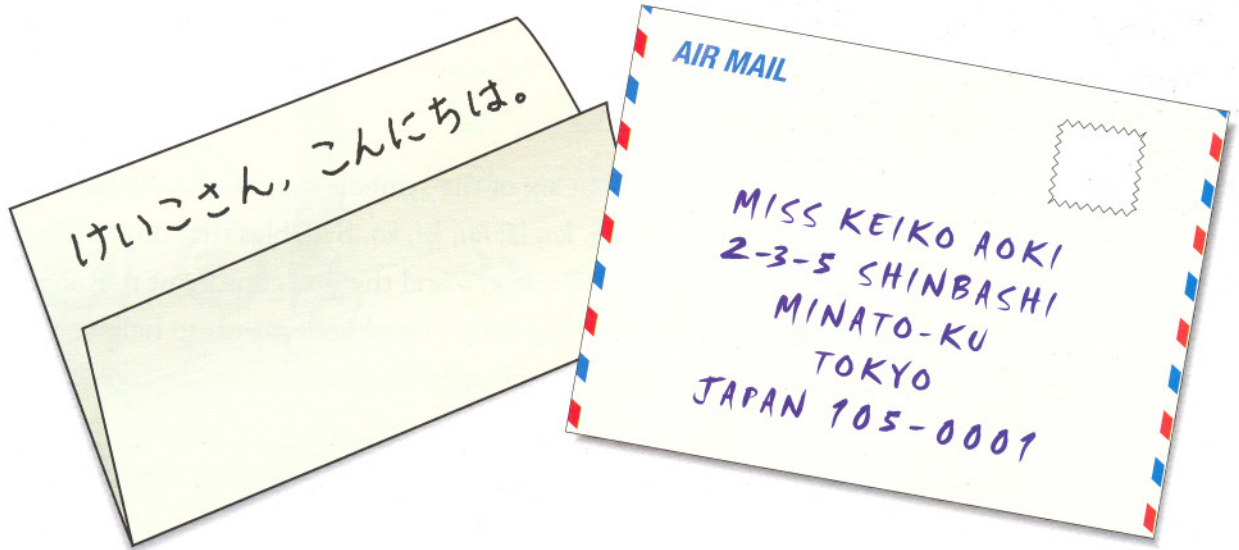 けいこさん, こんにちは。
AIR MAIL
MISS KEIKO AOKI
2-3-5 SHINBASHI
MINATO-KU
TOKYO
JAPAN 105-0001